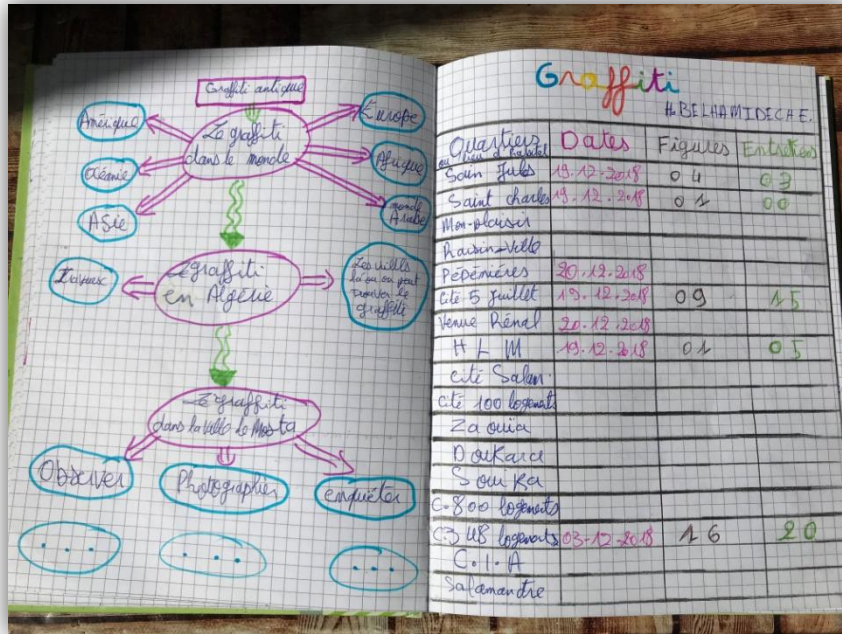 Graffiti antique
Amérique
Océanie
Asie
Le graffiti
dans le monde
Europe
Afrique
monde
Arabe
Le graffiti
en Algérie
Les villes
là où on peut
trouver le
graffiti
Le graffiti
dans la ville de Mosta
Observer
Photographier
enquêter
...
...
...
Graffiti
H. BELHAMIDECHE.
Quartiers Dates Figures Entretiens
ou lieu d'habitat
Sain Jules 19.12.2018 04 03
Saint charles 19.12.2018 01 00
Mon-plaisir
Raisin-Ville
Pépénières 20.12.2018
Cité 5 Juillet 19.12.2018 09 15
Venue Rénal 20.12.2018
H L M 19.12.2018 01 05
Cité Salam
Cité 100 logements
Zaouia
Doukara
Souika
C. 800 logements
C. 348 logements 03-12-2018 16 20
C.I.A
Salamandre